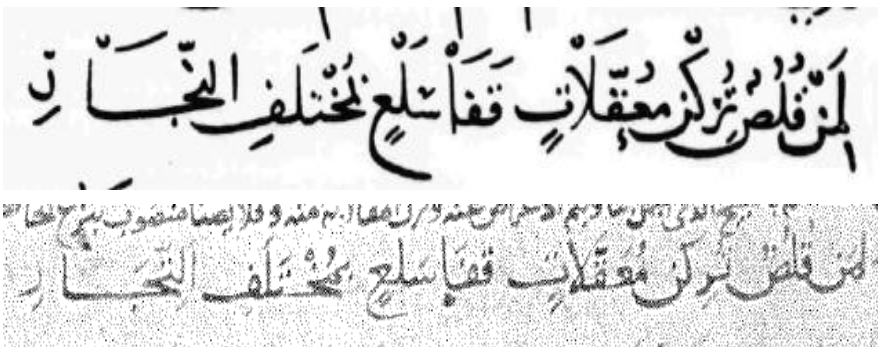 لِمَنْ قُلُصٌ تُرِكْنَ مُعَقَّلَاتٍ قَفَا سَلْعٍ بِمُخْتَلَفِ النِّجَارِ
منصوب بنزع
لِمَنْ قُلُصٌ تُرِكْنَ مُعَقَّلَاتٍ قَفَا سَلْعٍ بِمُخْتَلَفِ النِّجَارِ